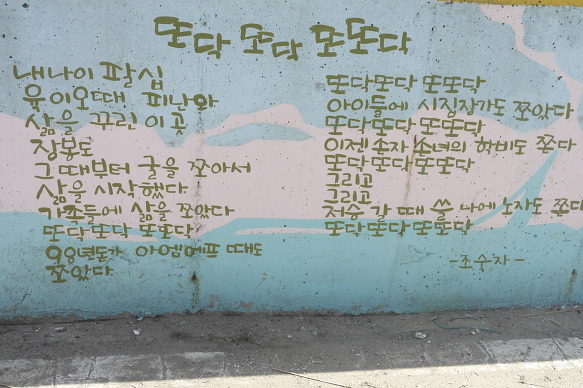 또닥 또닥 또또닥
내 나이 팔십
육이오때 피난와
삶을 꾸린 이곳
장봉도
그때부터 굴을 쪼아서
삶을 시작했다
가족들에 삶을 쪼았다
또닥또닥 또또닥
아엠에프 때도
쪼았다
또닥또닥 또또닥
아이들에 시집장가도 쪼았다
또닥또닥 또또닥
이젠 손자 손녀의 학비도 쫀다
또닥또닥 또또닥
그리고
그리고
저승 갈 때 쓸 나에 노자도 쫀다
또닥또닥 또또닥
-조숙자-